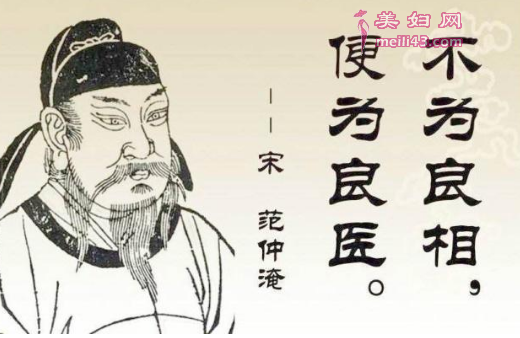 美妇网
meili43.com
不为良相，
便为良医。
——宋 范仲淹